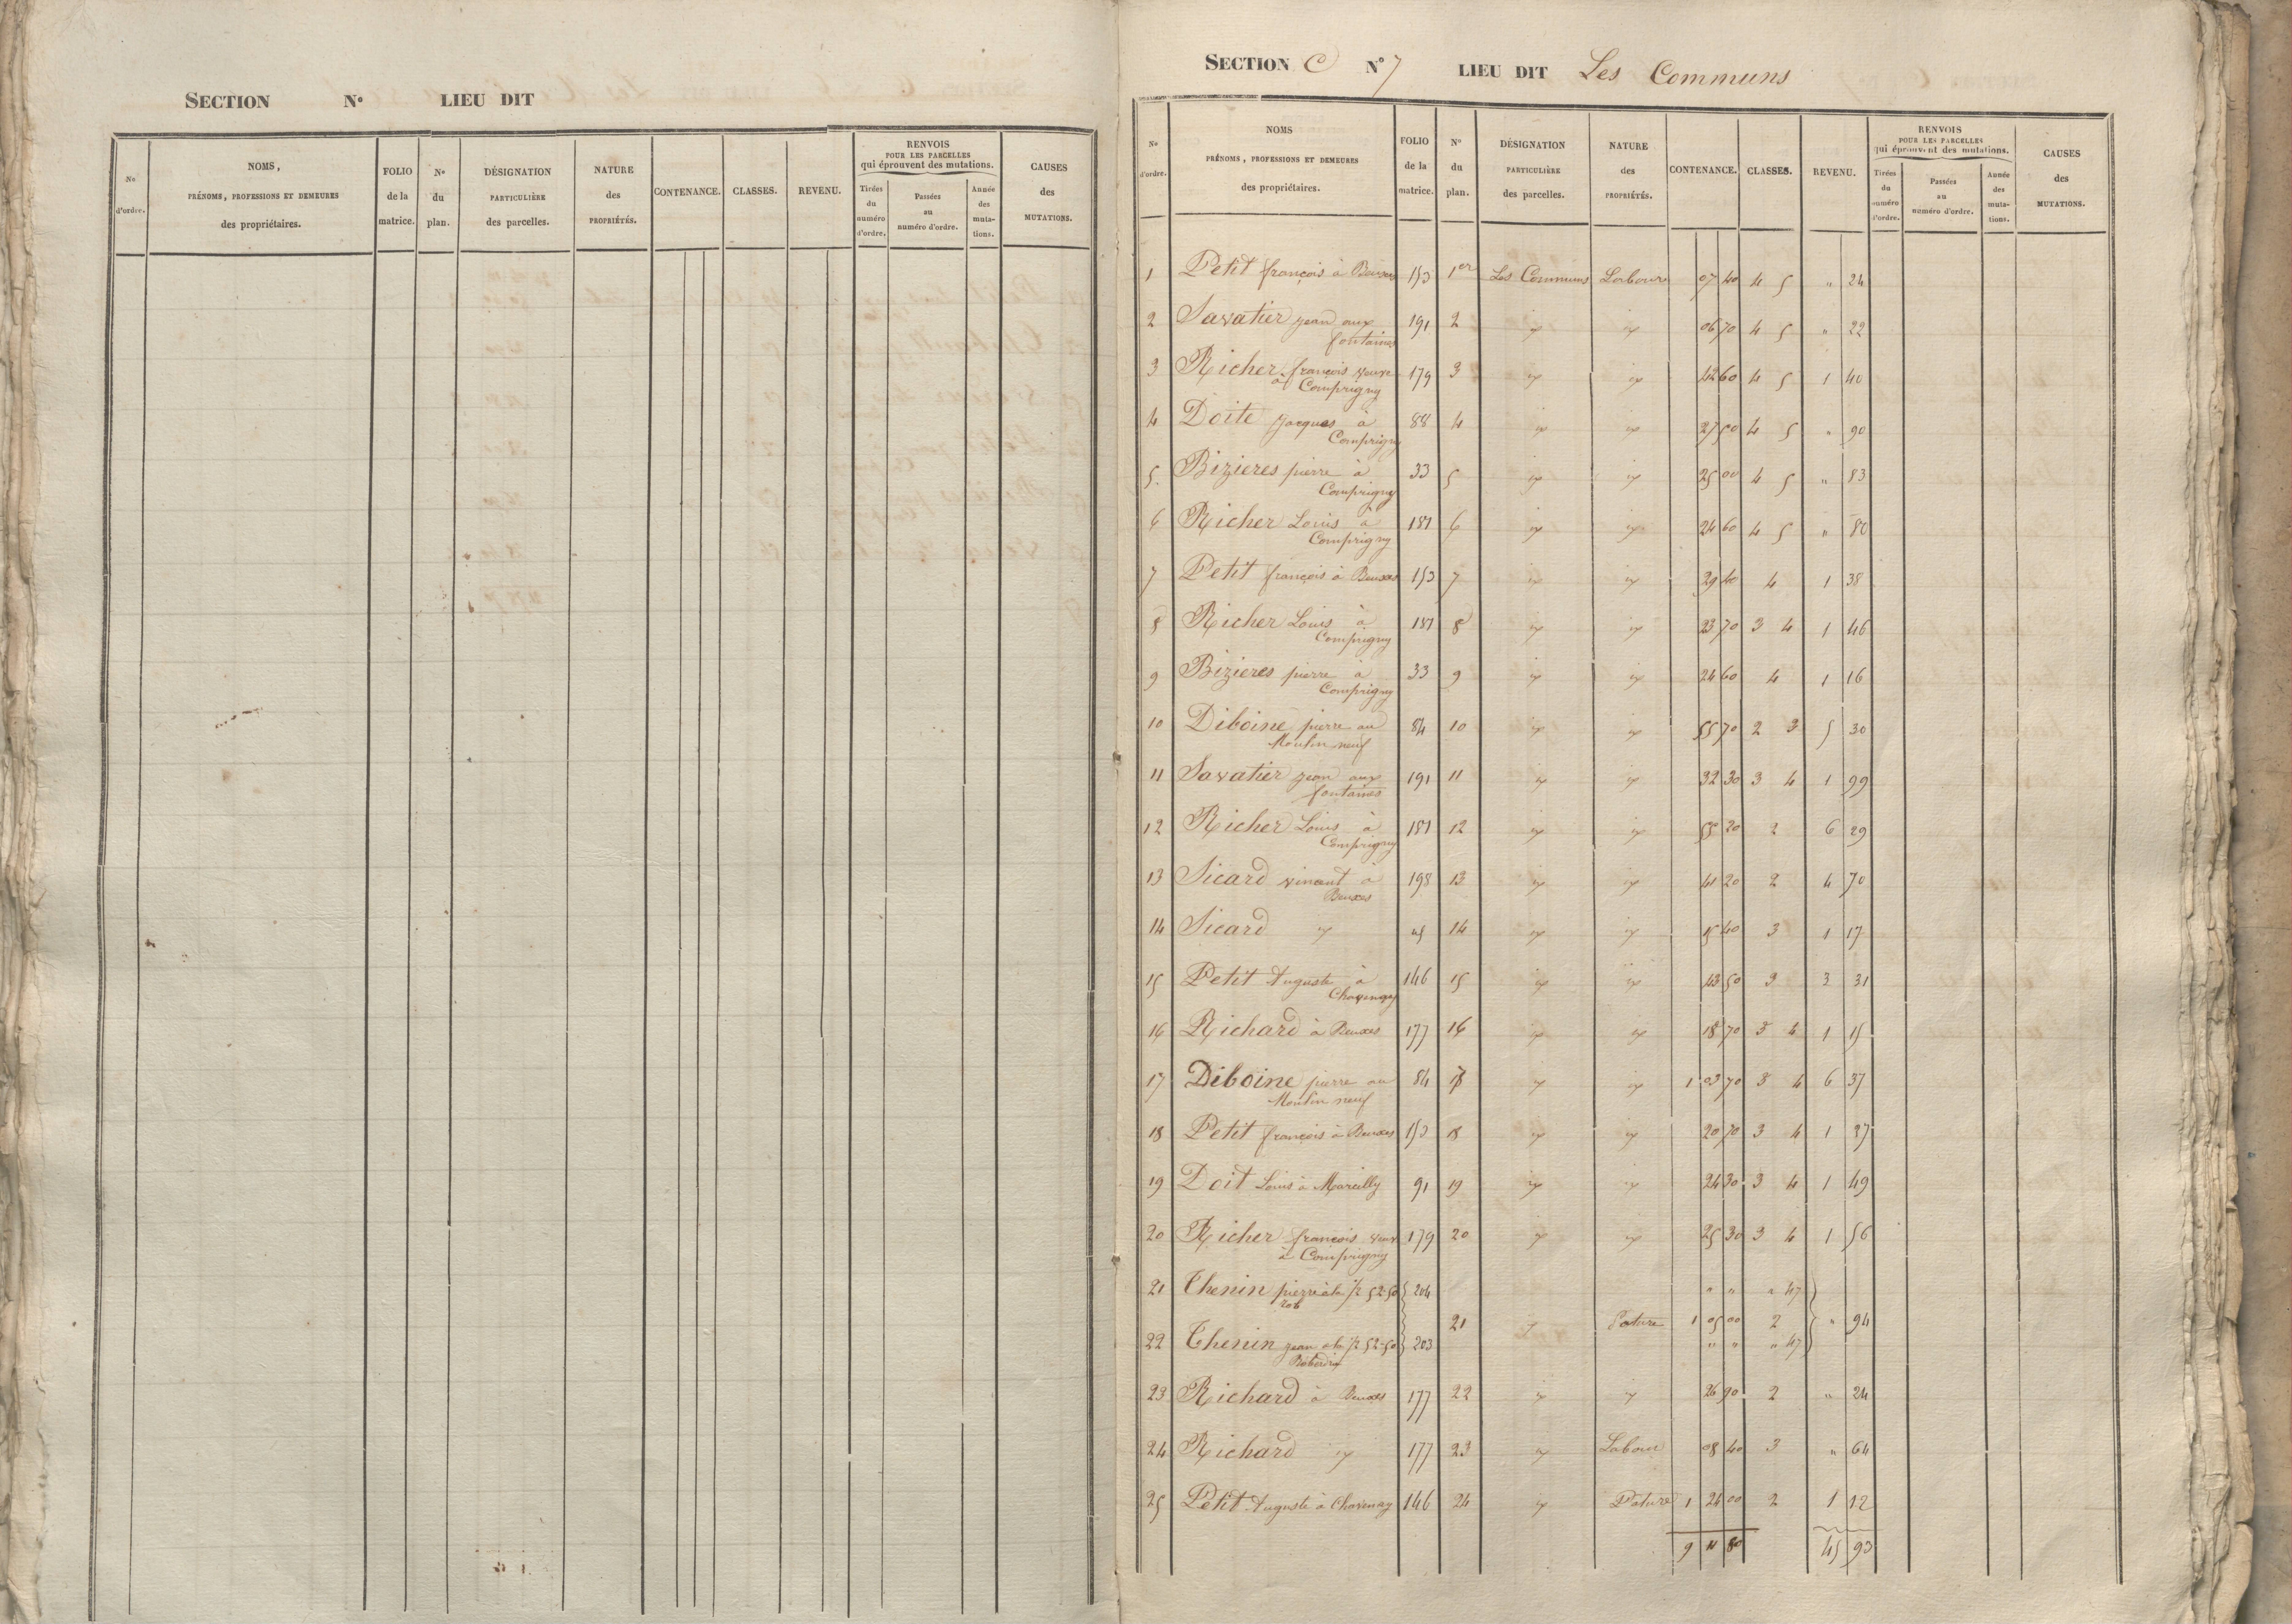 SECTION N° LIEU DIT
N° d'ordre.
NOMS, PRÉNOMS, PROFESSIONS ET DEMEURES des propriétaires.
FOLIO de la matrice.
N° du plan.
DÉSIGNATION PARTICULIÈRE des parcelles.
NATURE des PROPRIÉTÉS.
CONTENANCE.
CLASSES.
REVENU.
RENVOIS POUR LES PARCELLES qui éprouvent des mutations.
Tirées du numéro d'ordre.
Passées au numéro d'ordre.
Année des mutations.
CAUSES des MUTATIONS.
SECTION C N° 7 LIEU DIT Les Communs
N° d'ordre.
NOMS PRÉNOMS, PROFESSIONS ET DEMEURES des propriétaires.
FOLIO de la matrice.
N° du plan.
DÉSIGNATION PARTICULIÈRE des parcelles.
NATURE des PROPRIÉTÉS.
CONTENANCE.
CLASSES.
REVENU.
RENVOIS POUR LES PARCELLES qui éprouvent des mutations.
Tirées du numéro d'ordre.
Passées au numéro d'ordre.
Année des mutations.
CAUSES des MUTATIONS.
1 Petit françois à Beuxes 153 1er Les Communs Labour 07 40 4 5 " 24
2 Savatier jean aux 191 2 id id 06 70 4 5 " 22
fontaines
3 Richer françois veuve 179 3 id id 42 60 4 5 1 40
à Comprigny
4 Doite jacques à 88 4 id id 27 50 4 5 " 90
Comprigny
5 Bizieres pierre à 33 5 id id 25 00 4 5 " 83
Comprigny
6 Richer Louis à 181 6 id id 24 60 4 5 " 80
Comprigny
7 Petit françois à Beuxes 153 7 id id 29 40 4 1 38
8 Richer Louis à 181 8 id id 23 70 3 4 1 46
Comprigny
9 Bizieres pierre à 33 9 id id 24 60 4 1 16
Comprigny
10 Diboine pierre au 84 10 id id 55 70 2 3 5 30
Moulin neuf
11 Savatier jean aux 191 11 id id 32 30 3 4 1 99
fontaines
12 Richer Louis à 181 12 id id 55 20 2 6 29
Comprigny
13 Sicard vincent à 198 13 id id 41 20 2 4 70
Beuxes
14 Sicard id id 14 id id 15 40 3 1 17
15 Petit Auguste à 146 15 id id 43 50 3 3 31
16 Richard à Beuxes 177 16 id id 18 70 3 4 1 15
17 Diboine pierre au 84 17 id id 1 03 70 3 4 6 37
Moulin neuf
18 Petit françois à Beuxes 153 18 id id 20 70 3 4 1 27
19 Doit Louis à Marcilly 91 19 id id 24 30 3 4 1 49
20 Richer françois veuve 179 20 id id 25 30 3 4 1 56
à Comprigny
21 Thenin pierre 52-50 204 " " " 47
21 Pature 1 05 00 2 " 94
22 Thenin jean 52-50 203 " " " 47
23 Richard à Beuxes 177 22 id id 26 90 2 " 24
24 Richard id 177 23 id Labour 08 40 3 " 64
25 Petit Auguste à 146 24 id Pature 1 24 00 2 1 12
9 11 80 45 93